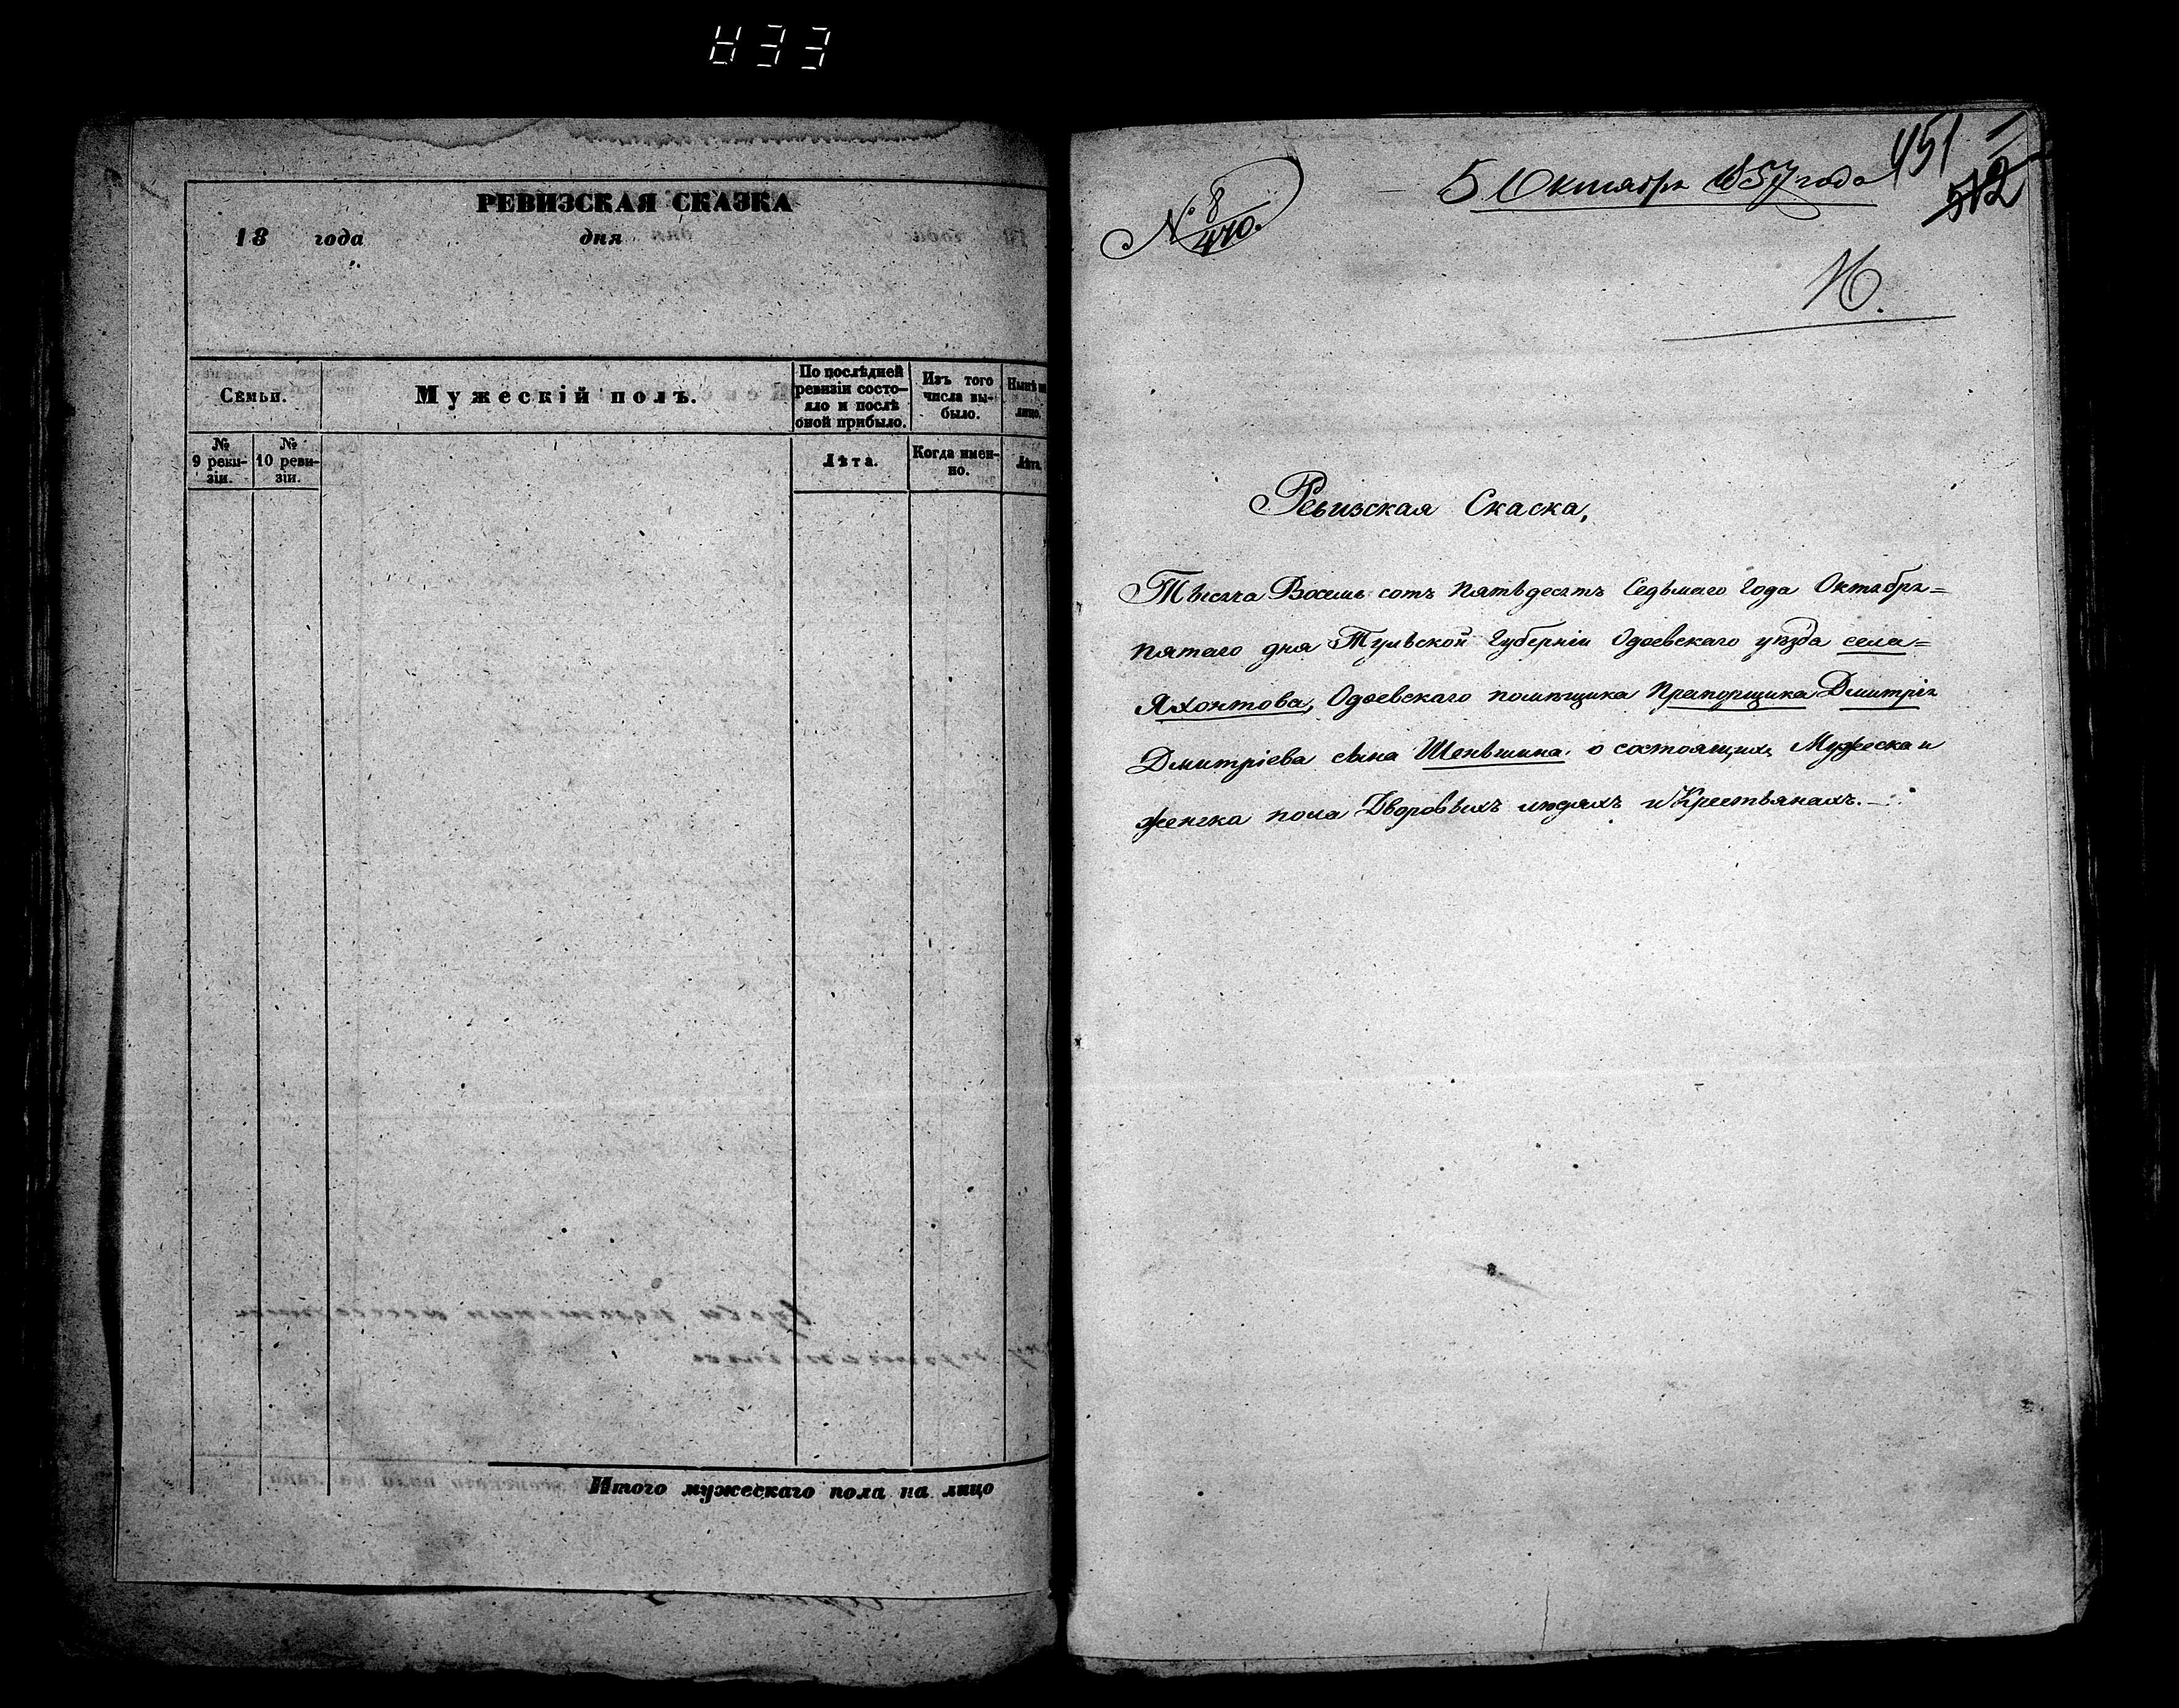 РЕВИЗСКАЯ СКАЗКА
18 года дня
Семьи.
Мужескій полъ.
По послѣдней
ревизіи состо-
яло и послѣ
оной прибыло.
Изъ того
числа вы-
было.
Нынѣ на
лицо.
№
9 реви-
зіи.
№
10 реви-
зіи.
Лѣта.
Когда имен-
но.
Лѣта
Итого мужескаго пола на лицо
451
512
5 Октября 1857 года
№ 8
470.
Ревизская Скаска,
Тысяча Восемь сотъ пятьдесятъ Седьмаго Года Октября=
пятаго дня Тульской Губерніи Одоевскаго уѣзда села=
Яхонтова, Одоевскаго помѣщика Прапорщика Дмитрія
Дмитріева сына Шеньшина. о состоящихъ Мужеска и
женска пола Дворовыхъ людяхъ и Крестьянахъ.-